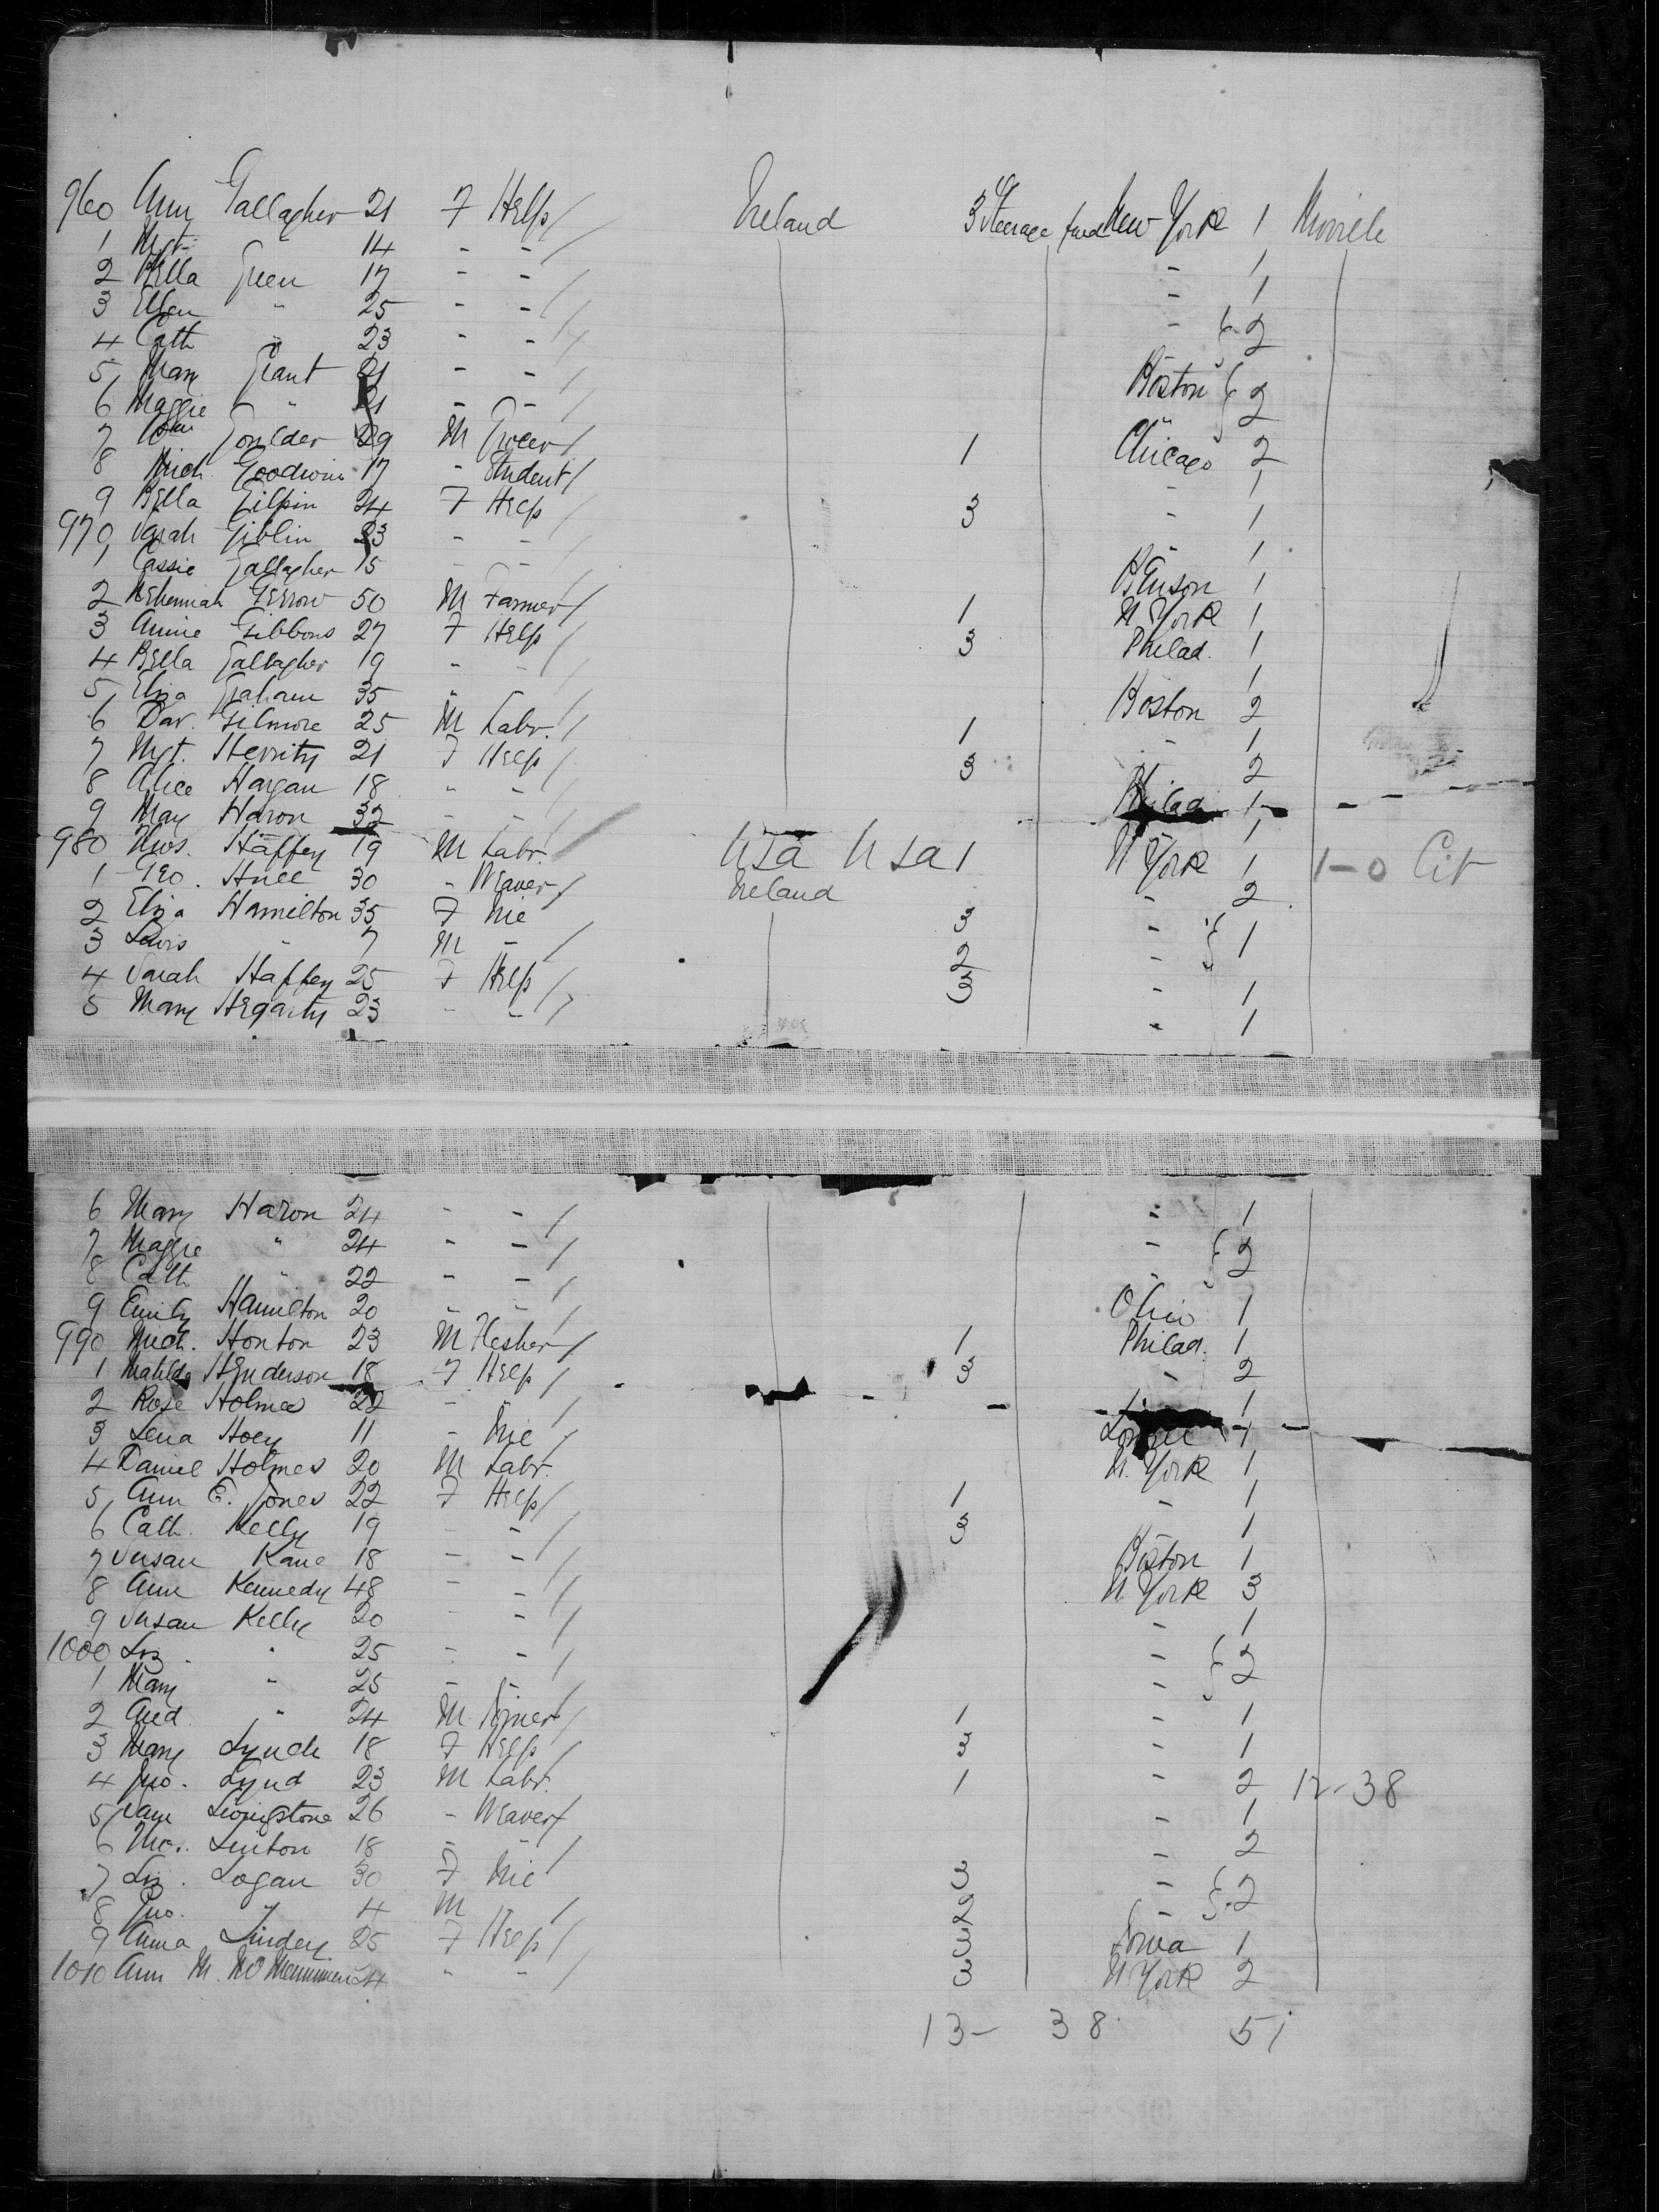 960 Ann Gallagher 21 F Help / Ireland 3 Steerage New York 1 Moville
1 Mgt " 14 - - / - 1
2 Bella Green 17 - - / - 1
3 Ellen " 25 - - / -
4 Cath " 23 - - / - } 2
5 Mary Grant 21 - - / Boston
6 Maggie " 21 - - / " } 2
7 Goulder 29 M Grocer / 1 Chicago 2
8 Mich. Goodwin 17 - Student / - 1
9 Bella Gilpin 24 F Help / 3 - 1
970 Sarah Giblin 23 - - / - 1
1 Cassie Gallagher 15 - - / Benson 1
2 Nehemiah 50 M Farmer / 1 N York 1
3 Annie Gibbons 27 F Help / 3 Philad. 1
4 Bella Gallagher 19 - - / - 1
5 Eliza Graham 35 - - / Boston 2
6 Dav. Gilmore 25 M Labr. / 1 - 1
7 Mgt. Herrity 21 F Help / 3 - 2
8 Alice Hargan 18 - - / Philad 1
9 May Haron 32 - - / - 1
980 Thos. Haffey 19 M Labr. USA USA 1 N York 1 1-0 Cit
1 Geo. Hill 30 - Weaver / Ireland - 2
2 Eliza Hamilton 35 F Nie 3 -
3 Lewis " 7 M - / 2 - } 1
4 Sarah Haffey 25 F Help / 3 - 1
5 Mary Hegarty 23 - - / - 1
6 Mary Haron 24 - - / - 1
7 Maggie " 24 - - / -
8 Cath " 22 - - / - } 2
9 Emily Hamilton 20 - - / Ohio 1
990 Mich. Honton 23 M Flesher / 1 Philad. 1
1 Matilda Henderson 18 F Help / 3 - 2
2 Rose Holmes 22 - - / 1
3 Lena Hoey 11 - Nie / 1
4 Daniel Holmes 20 M Labr. N. York 1
5 Ann E. Jones 22 F Help / 1 - 1
6 Cath. Kelly 19 - - / 3 - 1
7 Susan Kane 18 - - / Boston 1
8 Ann Kennedy 48 - - / N. York 3
9 Susan Kelly 20 - - / - 1
1000 Liz. " 25 - - / -
1 Mary " 25 - - / - } 2
2 And. " 24 M. Joiner / 1 - 1
3 Mary Lynch 18 F Help / 3 - 1
4 Jno. Lynd 23 M Labr. 1 - 2 12-38
5 Sam Livingstone 26 - Weaver / - 1
6 Thos. Linton 18 - - / - 2
7 Liz. Logan 30 F Nie 3 -
8 Jno. " 4 M / 2 - } 2
9 Anna Lindey 25 F Help / 3 Iowa 1
1010 Ann M. 24 - - / 3 N York 2
13- 38 51